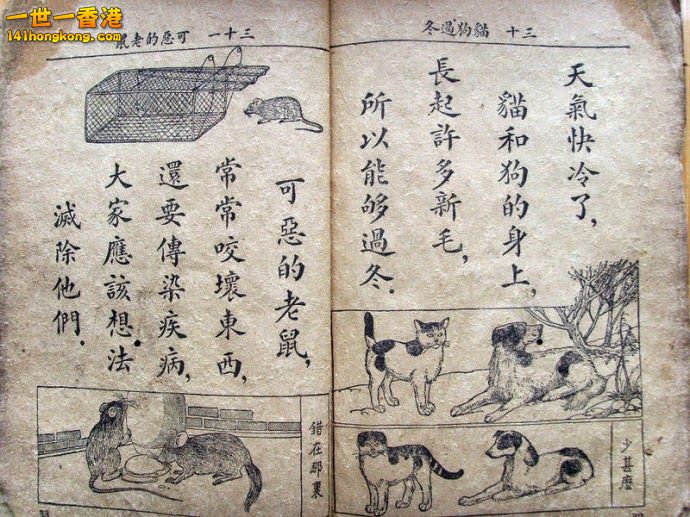 一世一香港
141hongkong.com
三十 貓狗過冬
天氣快冷了，
貓和狗的身上，
長起許多新毛，
所以能够過冬．
少甚麽
三十一 可惡的老鼠
可惡的老鼠，
常常咬壞東西，
還要傳染疾病，
大家應該想法
滅除他們．
錯在那裏
33